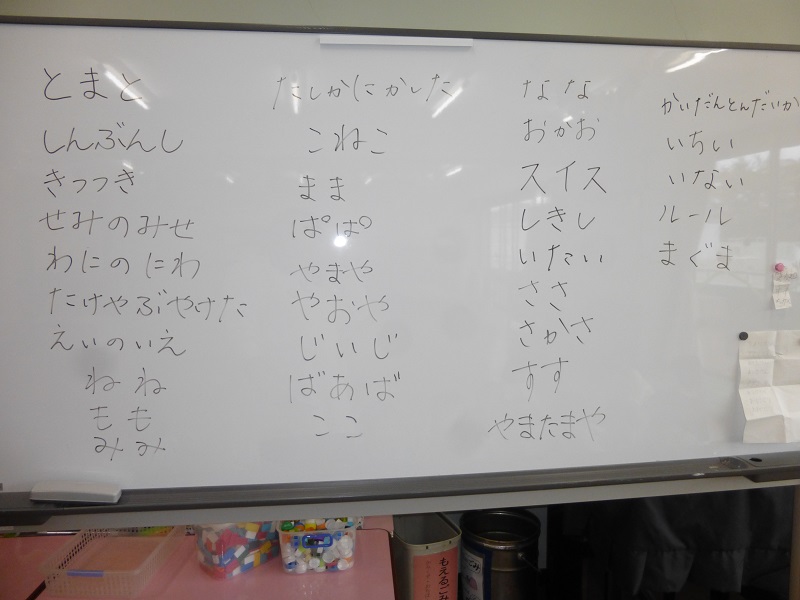 とまと
しんぶんし
きつつき
せみのみせ
わにのにわ
たけやぶやけた
えいのいえ
ねね
もも
みみ
たしかにかした
こねこ
まま
ぱぱ
やまや
やおや
じいじ
ばあば
ここ
なな
おかお
スイス
しきし
いたい
ささ
さかさ
すす
やまたまや
かいだんとんだいか
いちい
いない
ルール
まぐま
もえるごみ